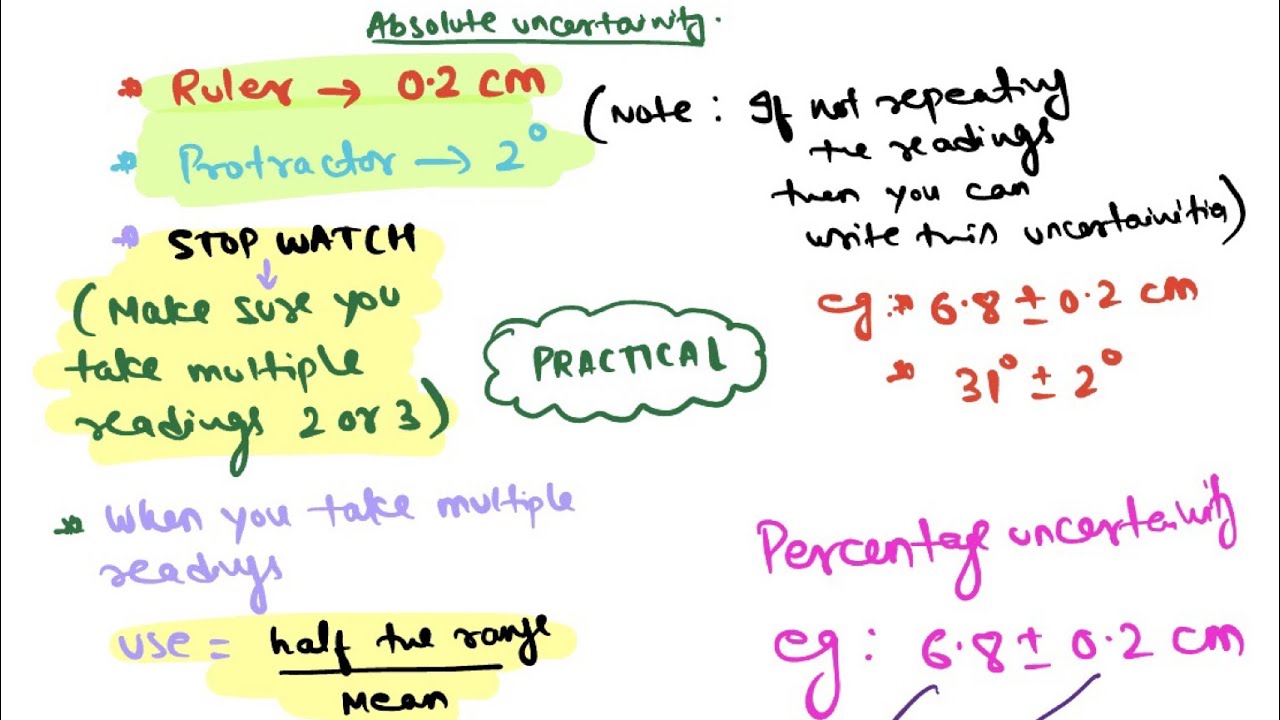 Absolute uncertainity.
* Ruler → 0.2 cm
* Protractor → 2°
(Note : If not repeating
the readings
then you can
write this uncertainities)
eg :* 6.8 ± 0.2 cm
* 31° ± 2°
* STOP WATCH
↓
(Make sure you
take multiple
readings 2 or 3)
PRACTICAL
* When you take multiple
readings
use = half the range
Mean
Percentage uncertainity
eg : 6.8 ± 0.2 cm